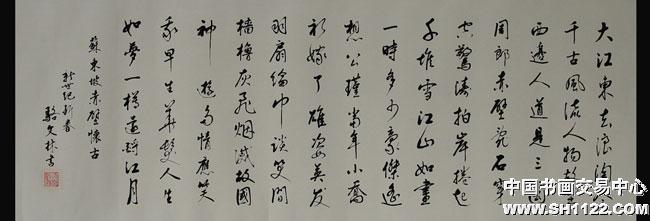 大江東去浪淘盡
千古風流人物故壘
西邊人道是三國
周郎赤壁亂石穿
空驚濤拍岸捲起
千堆雪江山如畫
一時多少豪傑遙
想公瑾當年小喬
初嫁了雄姿英發
羽扇綸巾談笑間
檣櫓灰飛烟滅故國
神遊多情應笑
我早生華髮人生
如夢一樽還酹江月
蘇東坡赤壁懷古
新世紀新春
駱文林書
中国书画交易中心
www.SH1122.com